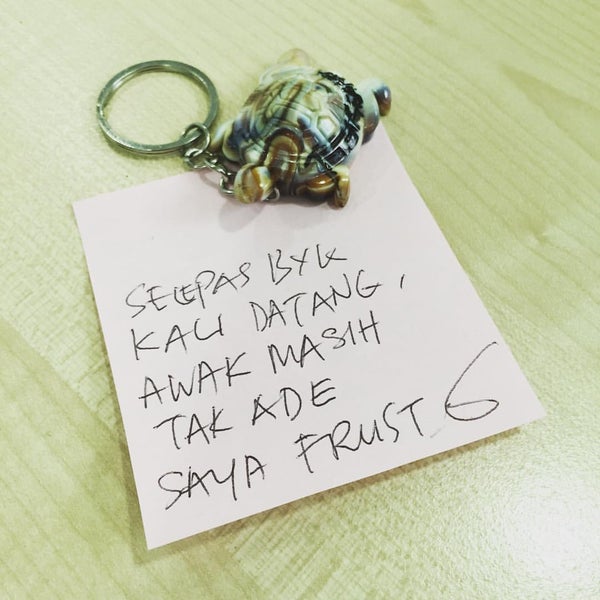 SELEPAS BYK
KALI DATANG,
AWAK MASIH
TAK ADE
SAYA FRUST